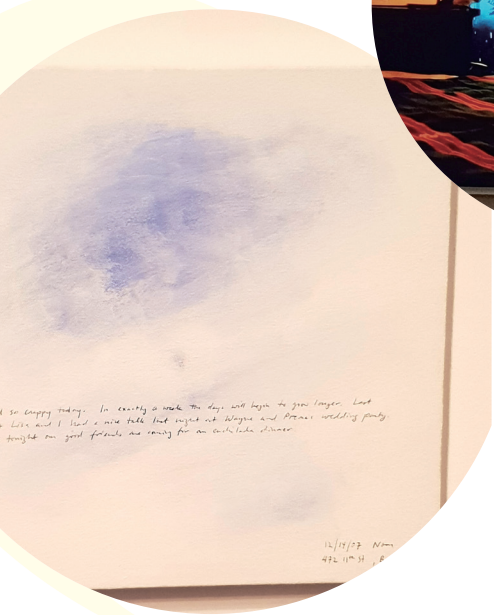 so crappy today. In exactly a week the days will begin to grow longer. Last
Lisa and I had a nice talk last night at Wayne and Prema's wedding party.
tonight our good friends are coming for an enchilada dinner.
12/14/07 Noon
472 11th St